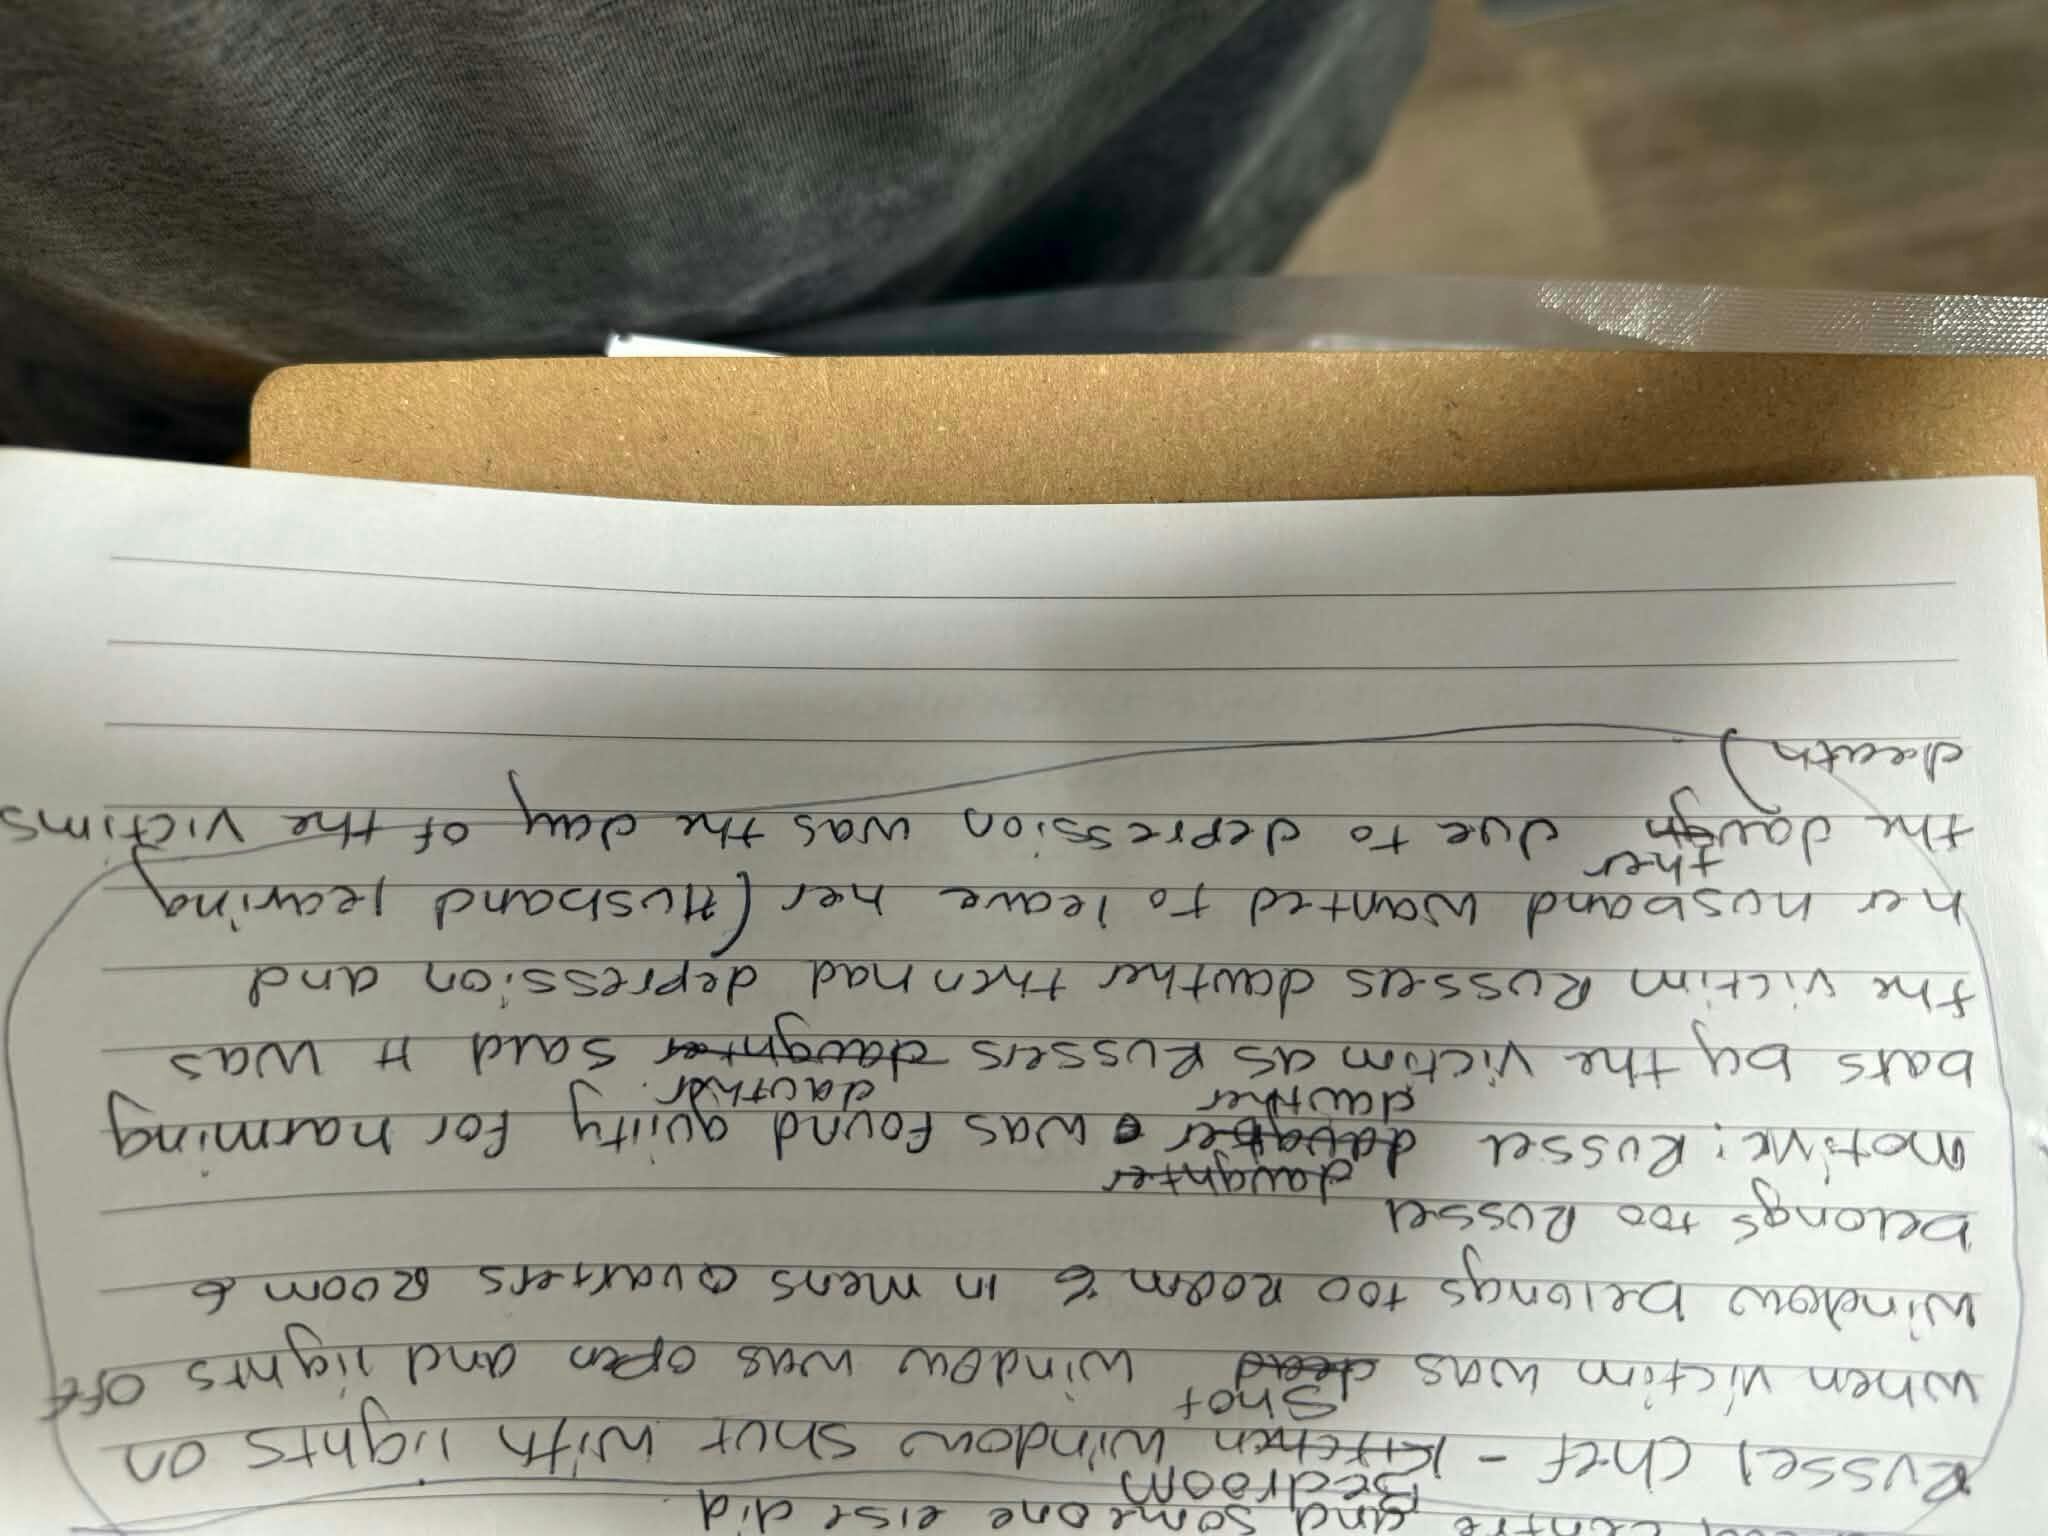 centre and someone else did
Bedroom
Russel Chef - Kitchen window shut with lights on
shot
when victim was dead window was open and lights off
window belongs too Room 6 in mens quarters Room 6
belongs too Russel
daughter
motive: Russel daugher was found guilty for harming
dawther dawther
bats by the victim as Russels daughter said it was
the victim Russels dawther then had depression and
her husband wanted to leave her (Husband leaving
ther
the daugh due to depression was the day of the victims
death)